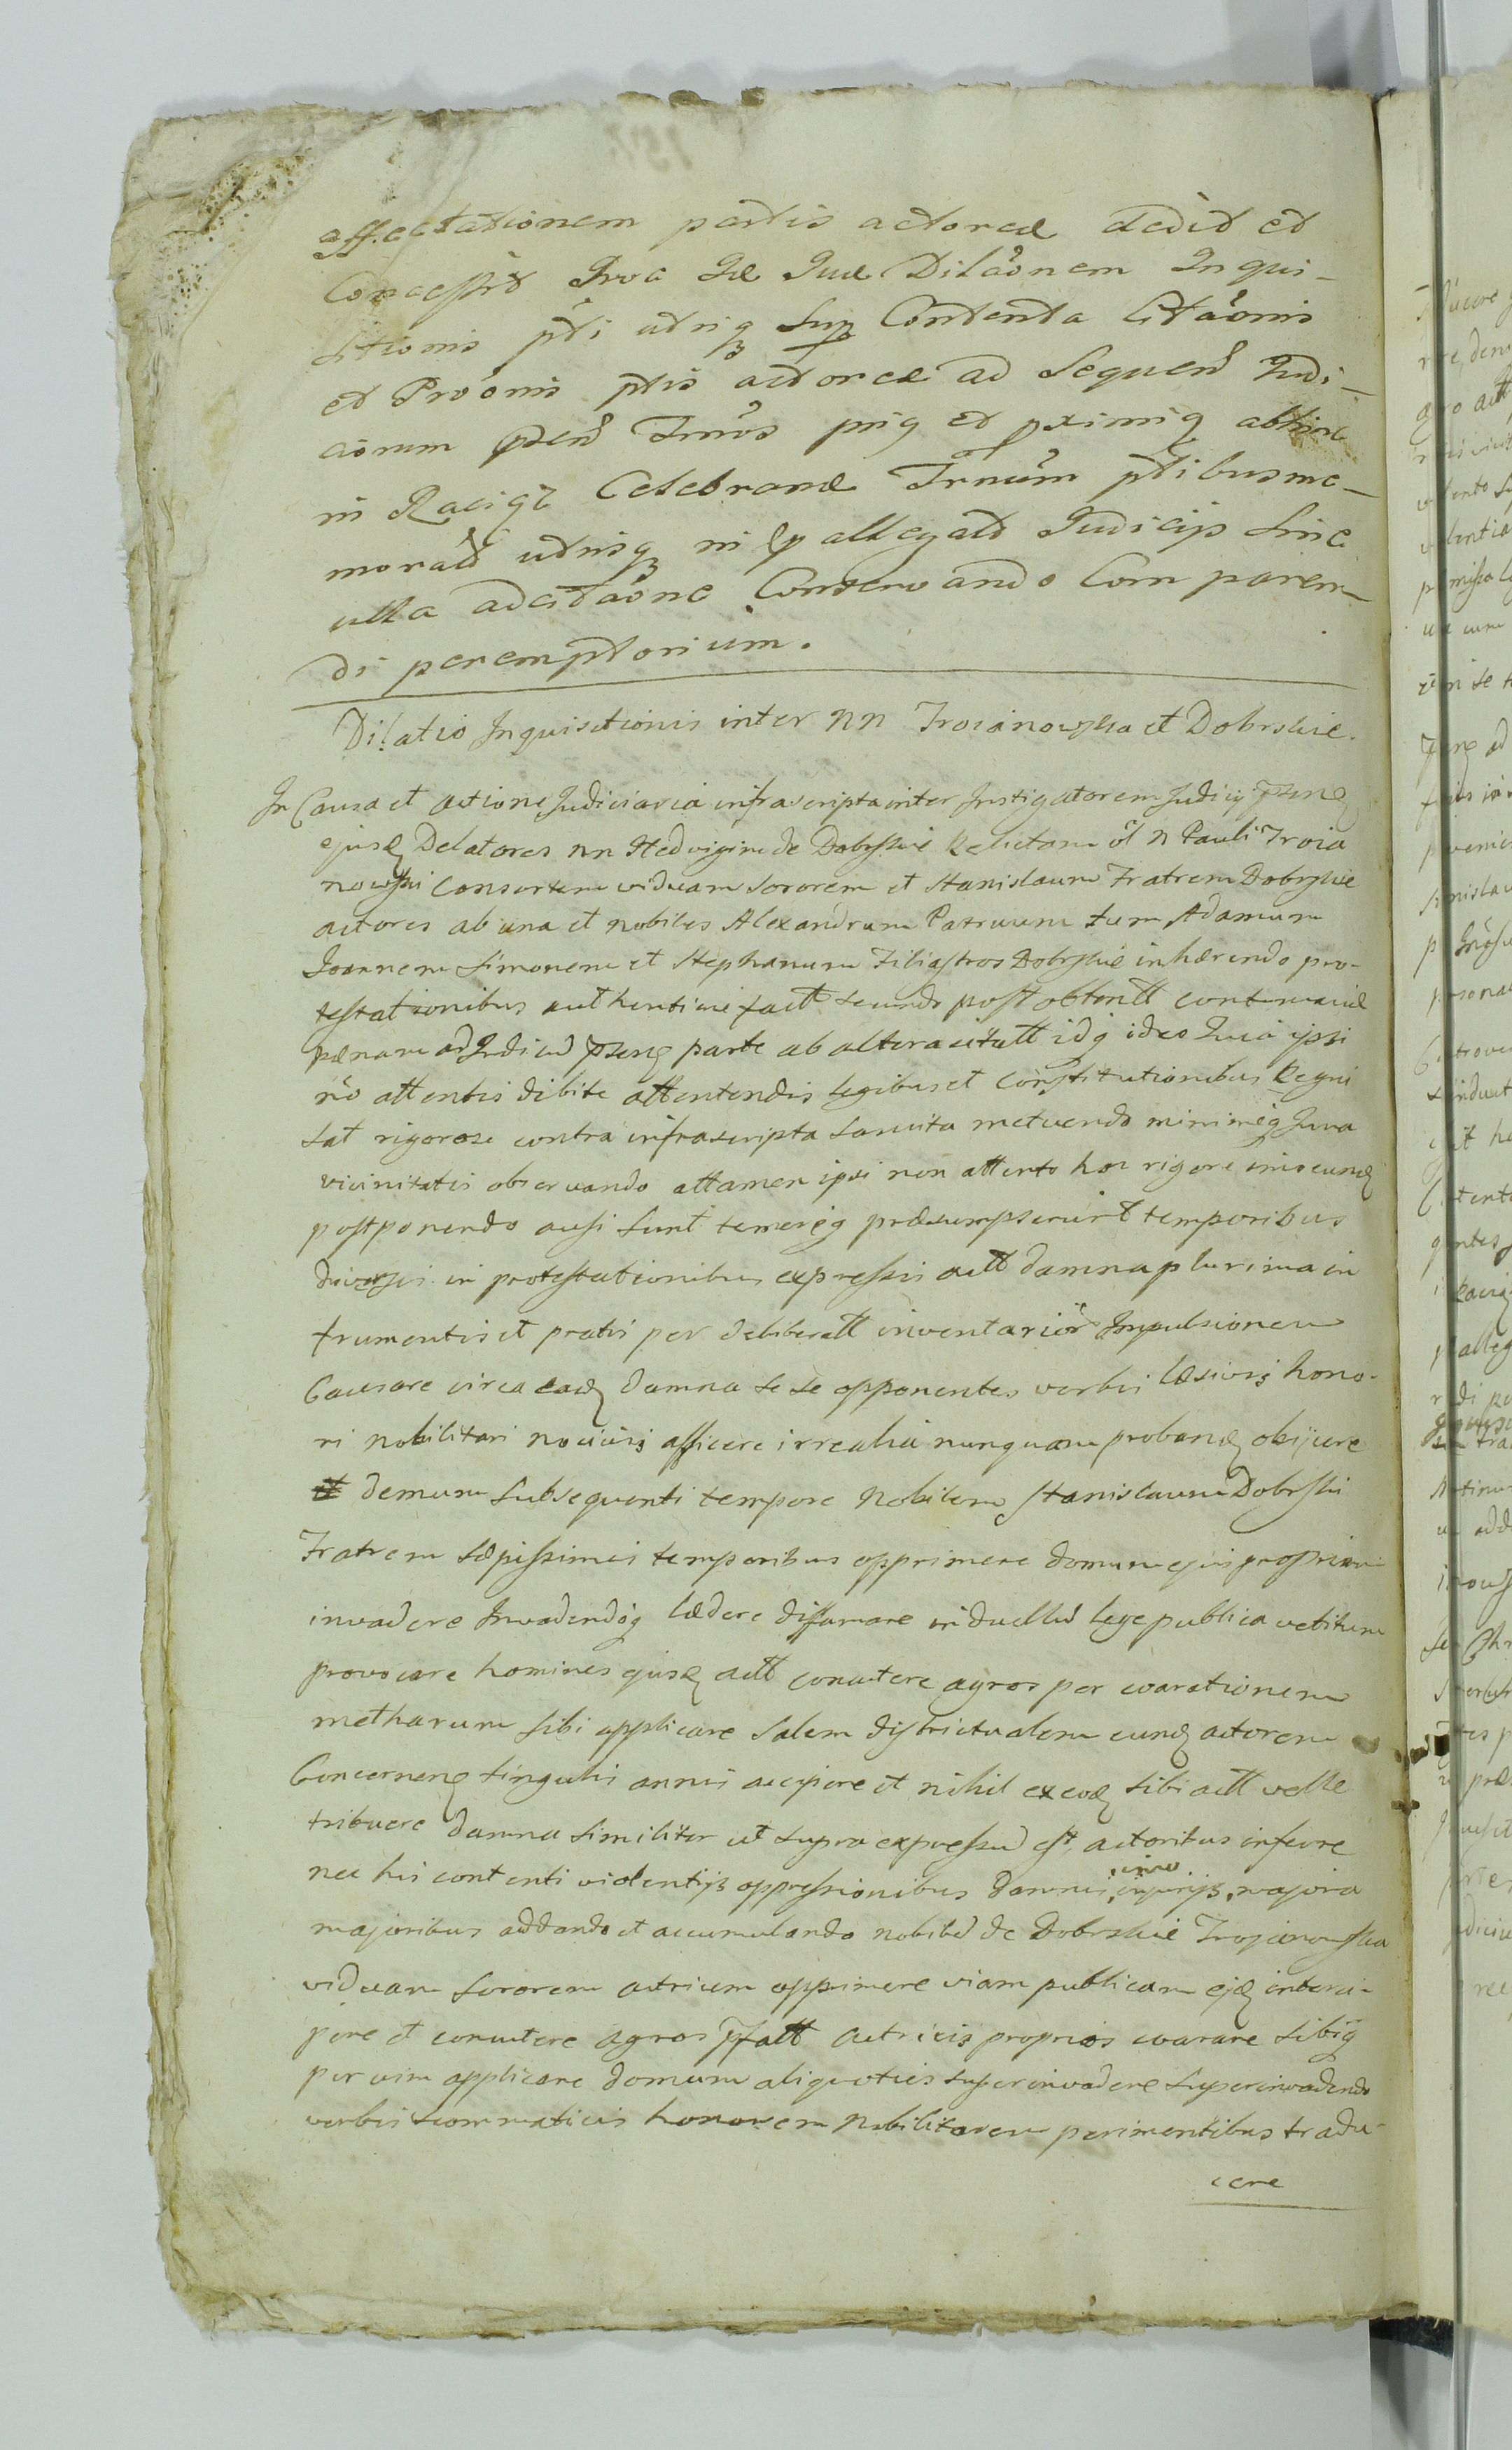 affectationem partis actoreæ dedit et
Concessit Proa Iæ Suæ Dilãonem Inqui-
sitionis pti utriq Sup Contenta Citãonis
et Prõonis ptis actoreæ ad Sequen Iudi-
ciorum Tmõs et pximiq abhinc
in Raciąż Celebrand Trnum ptibusme-
morat utrisq in allegato Iudicijs Sine
ulla adcitãone Conservando Comparen-
di peremptorium.
Dilatio Inquisitionis inter NN Troianowska et Dobrskie.
In Causa et actione Judiciaria infrascripta inter Instigatorem Judicij
ejusq Delatores nn Hedvigim de Dobrskie Relictam ol N Pauli Troia
nowski Consortem viduam sororem et Stanislaum Fratrem Dobrskie
actores ab una et nobiles Alexandrum Patruum tum Adamum
Joannem Simonem et Stephanum Filiastros Dobrskie inhærendo pro-
testationibus authentice fact secundo post obtent contumaciæ
pænam ad Judiciu parte ab altera citatt idq ideo Quia ipsi
nõ attentis debite attentendis legibus et Constitutionibus Regni
sat rigorose contra infrascripta sancita metuendo minimeq Jura
vicinitatis observando attamen ipsi non attento hoc rigore imo eundq
postponendo ausi sunt temereq præsumpserunt temporibus
diversis in protestationibus expressis actt damna plurima in
frumentis et pratis per deliberatt inventariõr Impulsionem
Causare circa eadq damna se se opponentes verbis læsivis hono-
ri nobilitari nocivis afficere irrealia nunquam probandq obijcere
et demum subsequenti tempore Nobilem Stanislaum Dobrski
Fratrem sæpissimis temporibus opprimere domum ejus propriam
invadere Invadendoq lædere diffamare in duellu lege publica vetitum
provocare homines ejusq actt concutere agros per exarationem
metharum sibi applicare Salem districtualem eundq actorem
Concernenq singulis annis accipere et nihil ex eodq sibi actt velle
tribuere damna similiter ut supra expressu est actoribus inferre
nec his contenti violentijs oppressionibus damnis, injurijs, imo majora
majoribus addendo et accumulando nobile de Dobrskie Trojanowska
viduam sororem actricem opprimere viam publicam ejq interci-
pere et concutere agros pfatt actricis proprios exarare sibiq
per vim applicare domum aliquoties superinvadere superinvadendo
verbis scommaticis honorem Nobilitarem perimentibus tradu-
cere